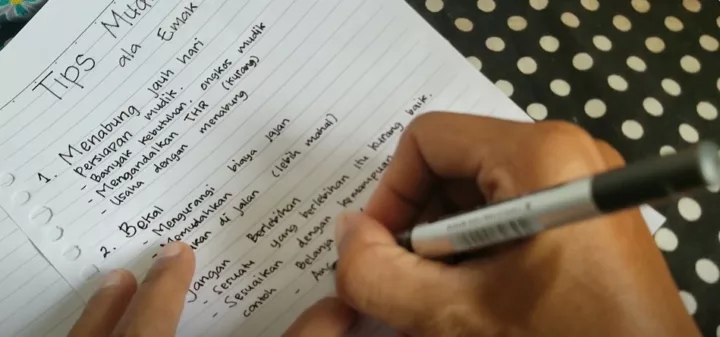 Tips
ala Emak
1. Menabung jauh hari
Persiapan mudik.
- Banyak kebutuhan, ongkos mudik
- Mengandalkan THR (kurang)
- Usaha dengan menabung
2. Bekal
- Mengurangi biaya jalan
di jalan (lebih mahal)
Berlebihan
- Sesuatu yang berlebihan itu kurang baik.
- Sesuaikan dengan kemampuan
contoh - Belanja